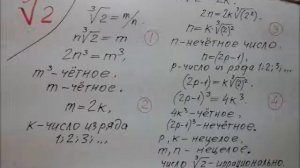 ∛2
∛2 = m/n
n∛2 = m
2n³ = m³,
m³-чётное.
m-чётное.
m = 2k.
к-число из ряда
1; 2; 3; ...
①
②
2n = 2k∛(2²)
n = k∛(2²)
n-нечётное число
n = (2p-1).
p-число из ряда 1; 2; 3; ...
(2p-1) = k∛(2²)
(2p-1)³ = 4k³
4k³-чётное.
(2p-1)³-нечётное.
p, к-нецелое.
m, n-нецелое.
число ∛2-иррационально
③
④